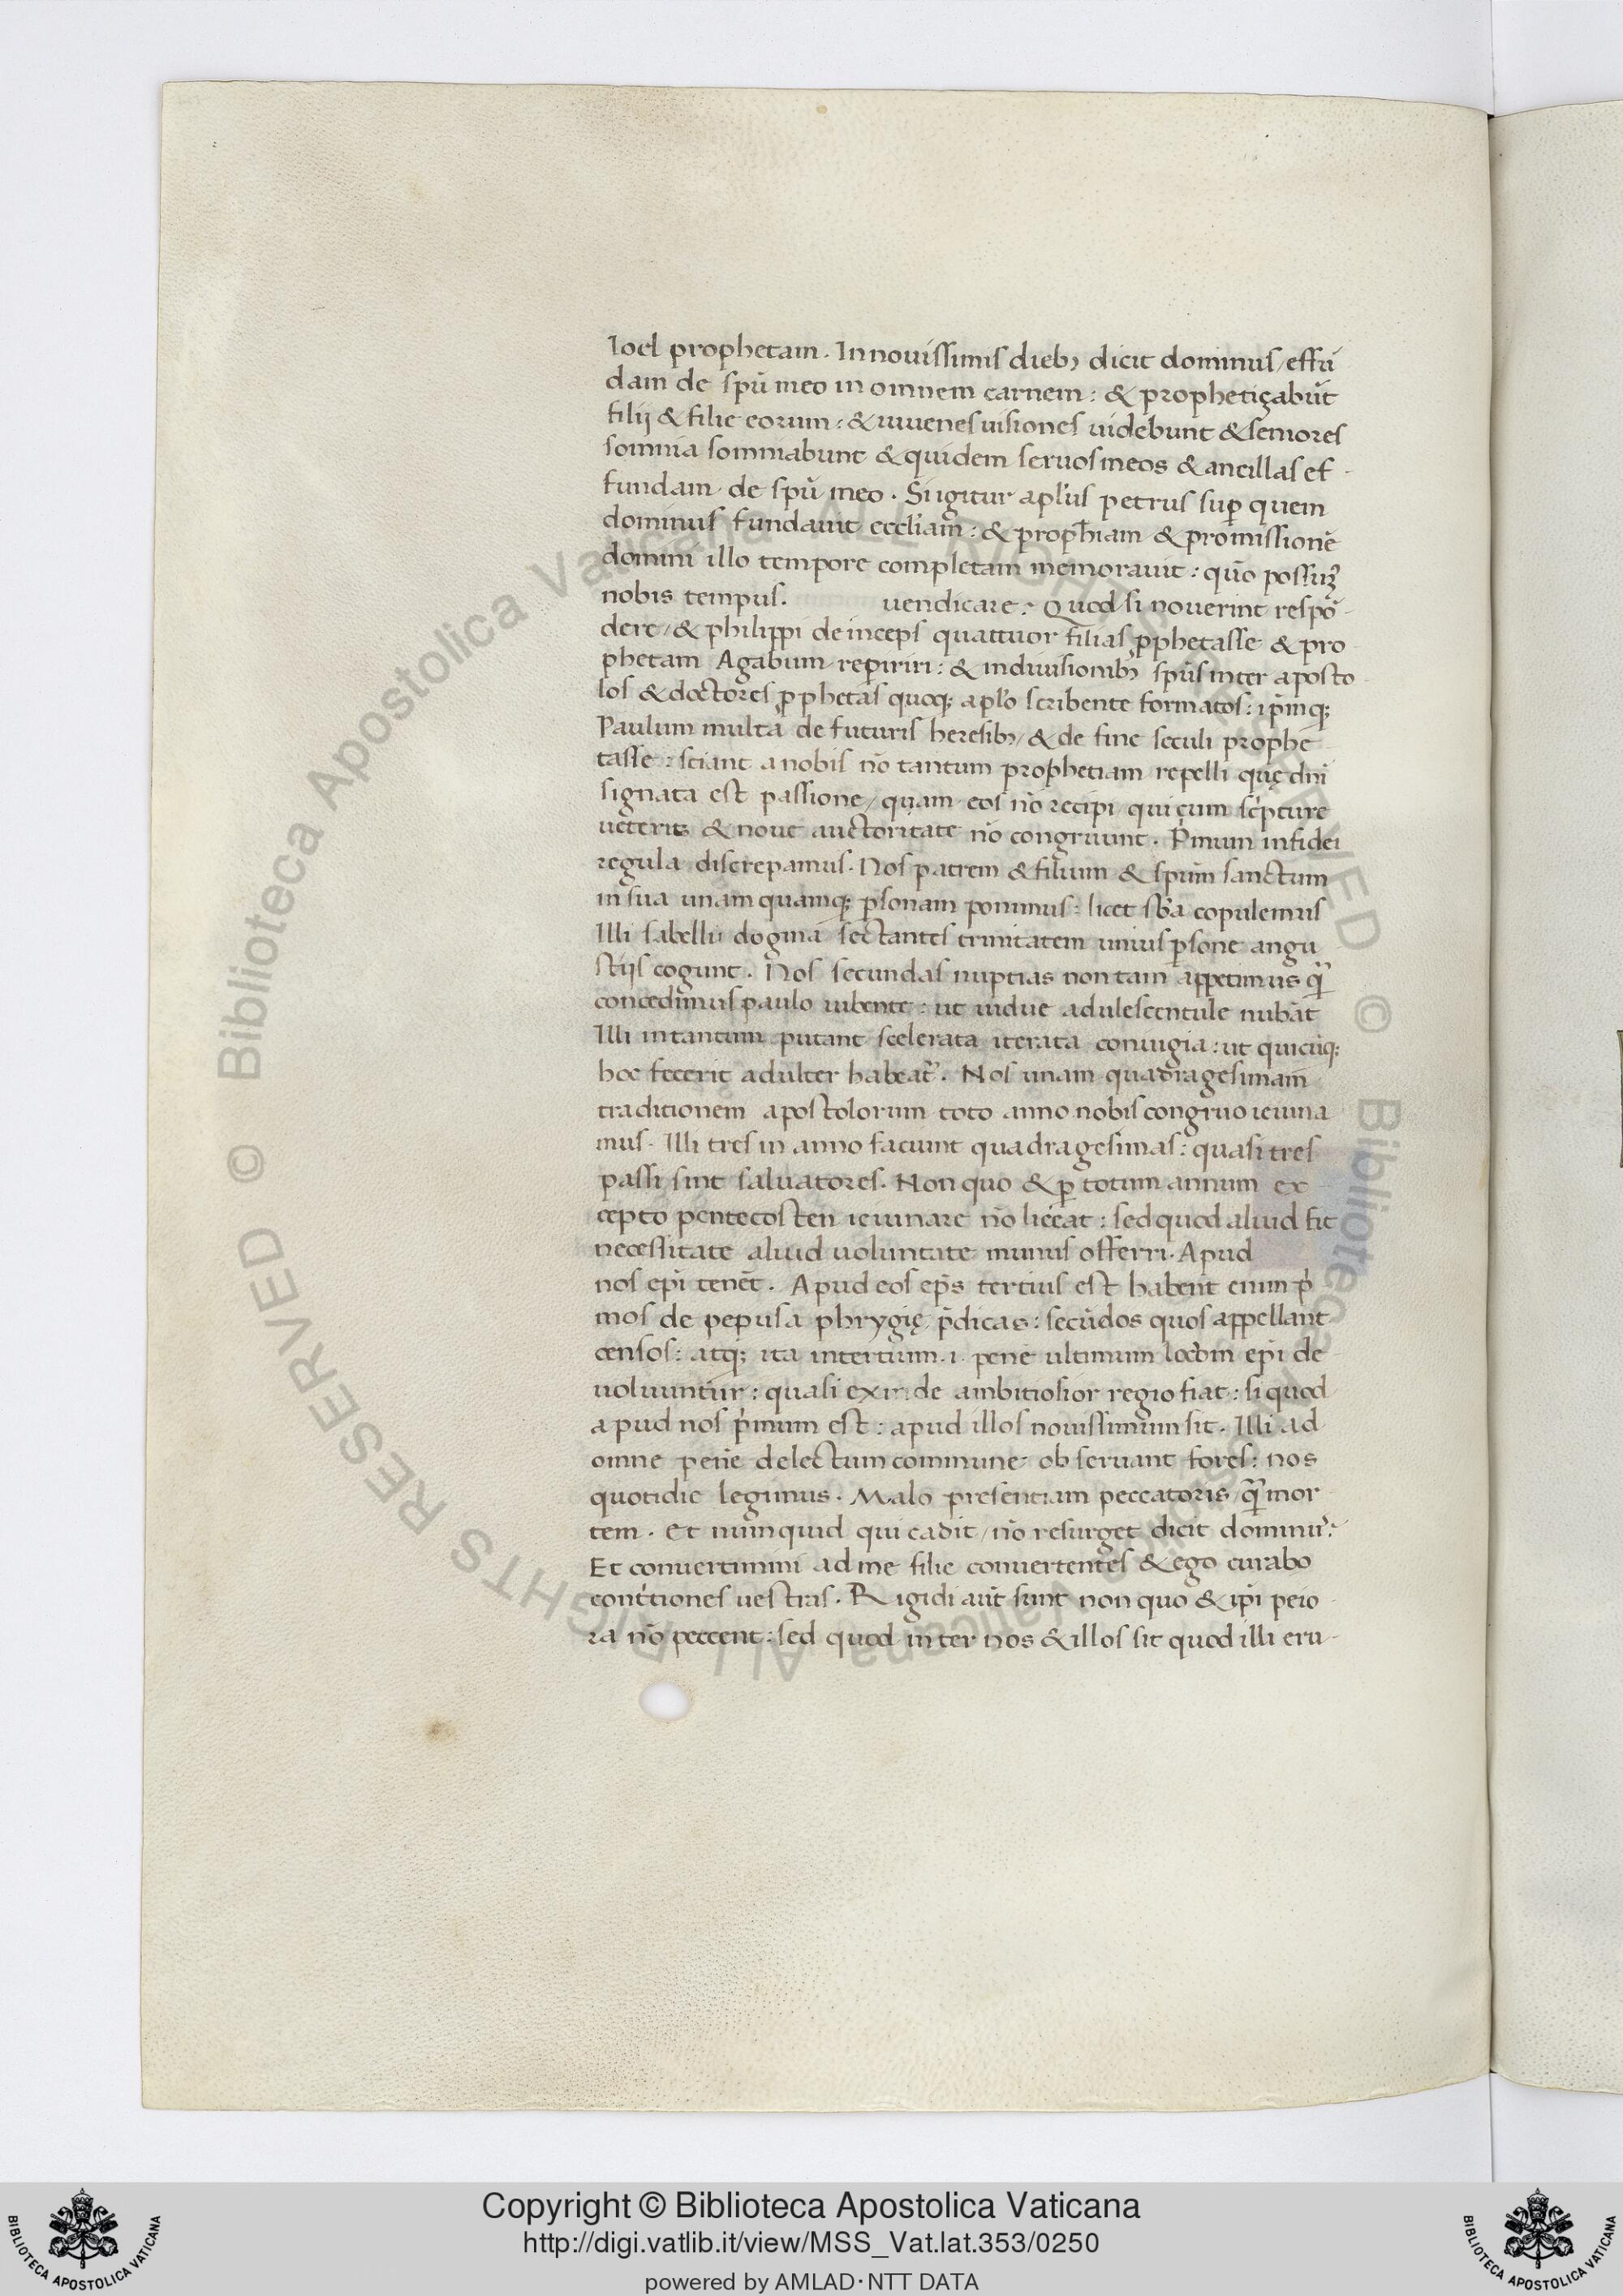 Ioel prophetam. In nouissimis dieb; dicit dominus / effū
dam de spū meo in omnem carnem: & prophetiçabūt
filij & filie eorum: & iuuenes uisiones uidebunt & seniores
somnia somniabunt & quidem seruos meos & ancillas ef-
fundam de spū meo. Si igitur apl'us petrus sup quem
dominus fundauit eccl'iam: & prophiam & promissionē
domini illo tempore completam memorauit: quō possum
nobis tempus. uendicare? Quod si nouerint respō-
dere / & philippi deinceps quattuor filias pphetasse & pro
phetam Agabum repiriri: & in diuisionib; spūs inter aposto
los & doctores pphetas quoq; apl'o scribente formatos: ipmq;
Paulum multa de futuris heresib; / & de fine seculi prophe
tasse: sciant a nobis nō tantum prophetiam repelli quę dni
signata est passione / quam eos nō recipi qui cum scpture
ueteris & noue auctoritate nō congruunt. Pmum in fidei
regula discrepamus. Nos patrem & filium & spūm sanctum
in sua unamquamq; psonam ponimus: licet sb'a copulemus
Illi sabellii dogma sectantes trinitatem unius psone angu
stijs cogunt. Nos secundas nuptias non tam appetimus q̄
concedimus paulo iubente: ut uidue adulescentule nubāt
Illi intantum putant scelerata iterata coniugia: ut quicūq;
hoc fecerit adulter habeat'. Nos unam quadragesimam
traditionem apostolorum toto anno nobis congruo ieiuna
mus. Illi tres in anno faciunt quadragesimas: quasi tres
passi sint saluatores. Non quo & p totum annum ex-
cepto pentecosten ieiunare nō liceat: sed quod aliud sit
necessitate aliud uoluntate munus offerri. Apud
nos epi tenēt. Apud eos eps tertius est habent enim p'
mos de pepusa phrygię pdicas: secūdos quos appellant
censos: atq; ita in tertium .i. pene ultimum locum epi de
uoluuntur: quasi exinde ambitiosior regio fiat: si quod
apud nos p'mum est: apud illos nouissimum sit. Illi ad
omne pene delectum commune obseruant fores: nos
quotidie legimus. Malo presentiam peccatoris / q̄ mor
tem. Et nunquid qui cadit / nō resurget dicit dominus?
Et conuertimini ad me filie conuertentes & ego curabo
cont'tiones uestras. Rigidi aūt sunt non quo & ipi peio
ra nō peccent: sed quod inter nos & illos sit quod illi eru-
© Biblioteca Apostolica Vaticana ALL RIGHTS RESERVED © Biblioteca Apostolica Vaticana ALL RIGHTS RESERVED
Copyright © Biblioteca Apostolica Vaticana
http://digi.vatlib.it/view/MSS_Vat.lat.353/0250
powered by AMLAD・NTT DATA
BIBLIOTECA APOSTOLICA VATICANA
BIBLIOTECA APOSTOLICA VATICANA